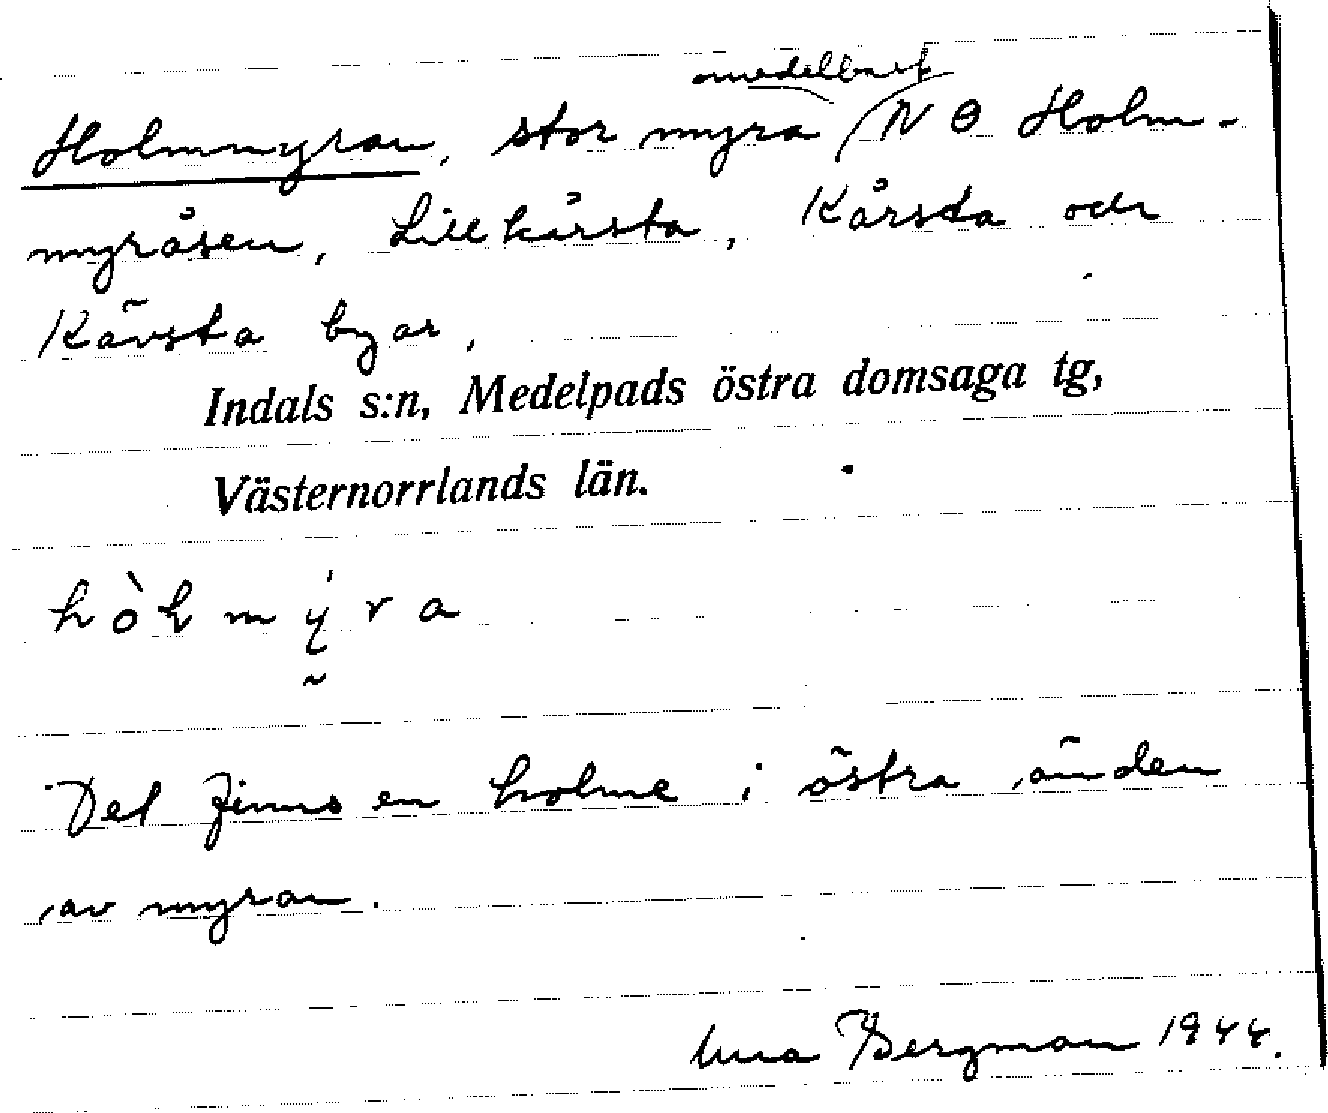 Holmmyran, stor myra omedelbart N Ö Holm-
myråsen, Lillkärsta, Kårsta och
Kävsta byar,
Indals s:n, Medelpads östra domsaga tg,
Västernorrlands län.
Det finns en holme i östra änden
av myran.
Bergman 1944.